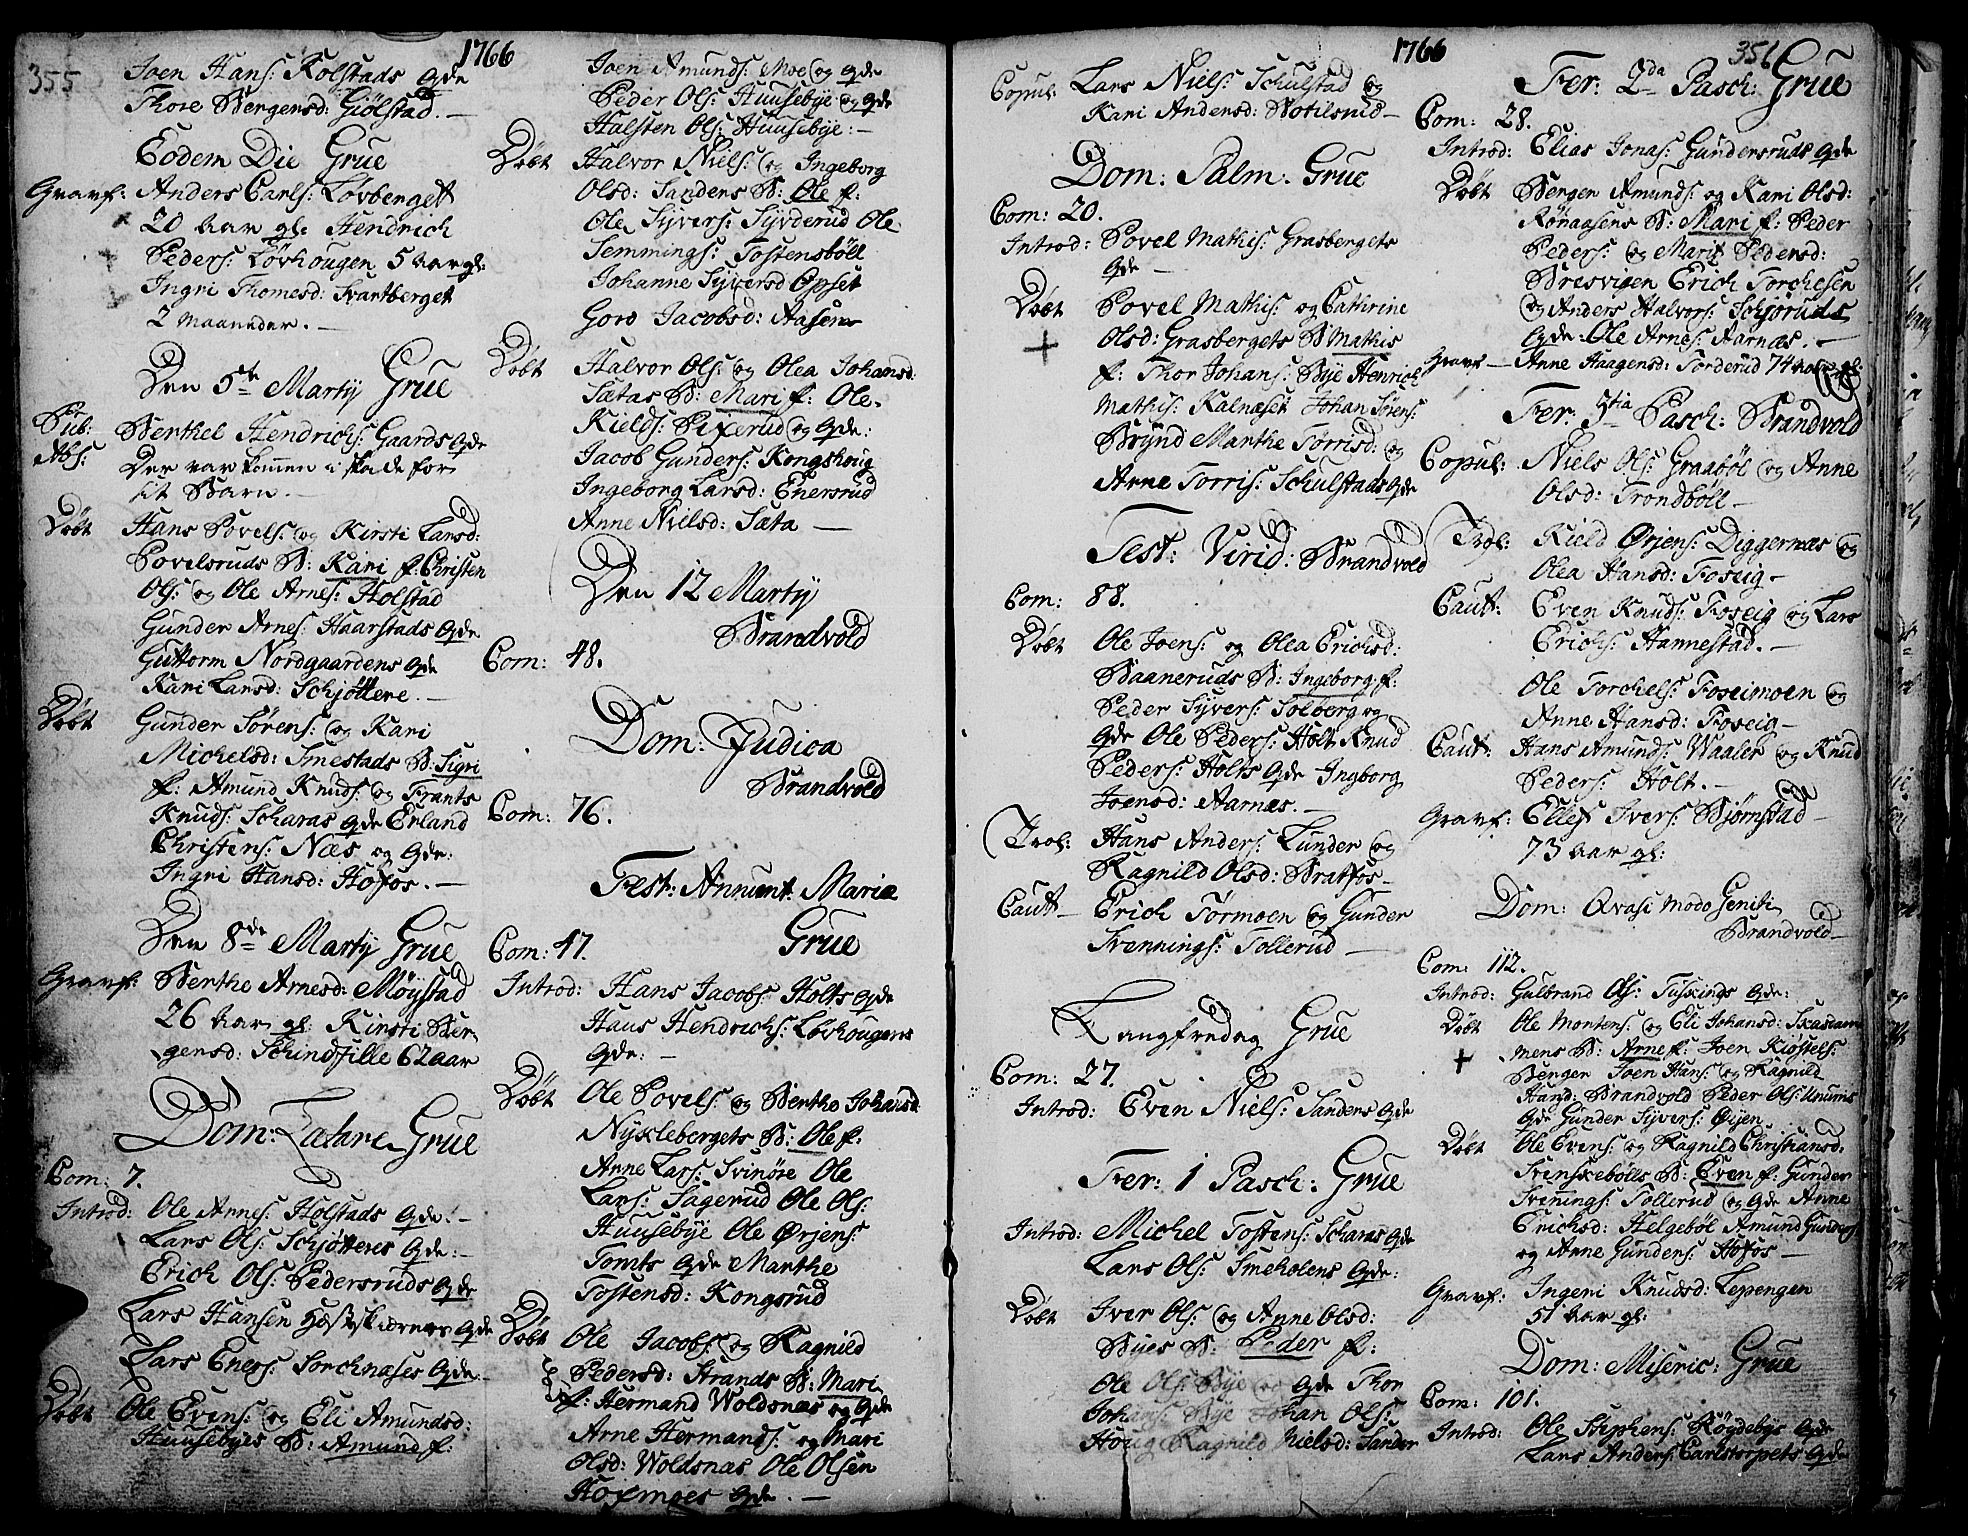 355
1766
Joen Hans: Kolstads Qde
Thore Bergensd: Giölstad. —
Eodem Die Grue
Gravf: Anders Carls: Lövberget
20 Aar gl: Hendrich
Peders: Lövhougen 5 Aar gl:
Ingri Thomesd: Svartberget
2 Maaneder. —
Den 5te Martij Grue
Pub: Abs: Berthel Hendrichs: Gaards Qde
Der var kommen i skade for
sit Barn. —
Döbt Hans Povels: og Kirsti Larsd:
Povelsruds B: Kari f: Christen
Ols: og Ole Arnes: Holstad
Gunder Arnes: Haarstads Qde
Guttorm Nordgaardens Qde
Kari Larsd: Schjöttere. —
Döbt Gunder Sörens: og Kari
Michelsd: Smestads B: Sigri
f: Amund Knuds: og Frants
Knuds: Scharas Qde Erland
Christens: Næs og Qde:
Ingri Hansd: Hofos. —
Den 8de Martij Grue
Gravf: Berthe Arnesd: Möystad
26 Aar gl: Kirsti Ber
gensd: Schindfille 62 aar
Dom: Lætare Grue
Com: 7.
Introd: Ole Arnes: Holstads Qde: —
Lars Ols: Schjötteres Qde: —
Erich Ols: Pedersruds Qde
Lars Hansen Qde
Lars Eners: Sorchnæses Qde
Döbt Ole Evens: og Eli Amundsd:
Huusebyes B: Amund f:
Joen Amunds: Moe og Qde
Peder Ols: Huusebye og Qde
Halsten Ols: Huusebye: —
Döbt Halvor Niels: og Ingeborg
Olsd: Sandens B: Ole f:
Ole Syvers: Syverud Ole
Semmings: Tostensböll
Johanne Syversd Opset
Goro Jacobsd: Aasen
Döbt Halvor Ols: og Olea Johansd:
Sætas B: Mari f: Ole
Kields: Pixerud og Qde:
Jacob Gunders: Kongshoug
Ingeborg Larsd: Enersrud
Anne Nielsd: Sæta —
Den 12 Martij
Brandvold
Com: 48.
Dom: Judica
Brandvold
Com: 76.
Fest: Annunt: Mariæ
Grue
Com: 47.
Introd: Hans Jacobs: Holts Qde
Hans Hendrichs: Lövhougens
Qde: —
Döbt Ole Povels: og Berthe Johansd
Nyklebergets B: Ole f:
Anne Lars: Svinöre Ole
Lars: Sagerud Ole Ols:
Huusebye Ole Örjens:
Tomts Qde Marthe
Tostensd: Kongsrud
Döbt Ole Jacobs: og Ragnild
Pedersd: Strands B: Mari
f: Hermand Woldsnæs og Qde
Arne Hermands: og Mari
Olsd: Woldsnæs Ole Olsen
Hoxmoes Qde. —
1766
356
Copul: Lars Niels: Schulstad og
Kari Andersd: Notilsrud —
Dom: Palm: Grue
Com: 20.
Introd: Povel Mathis: Grasbergets
Qde —
Döbt Povel Mathis: og Cathrine
+ Olsd: Grasbergets B: Mathis
f: Thor Johans: Bye Henrich
Mathis: Kalnæset Johan Sörens:
Brynd Marthe Torrisd: og
Arne Torris: Schulstads Qde
Fest: Virid: Brandvold
Com: 88.
Döbt Ole Joens: og Olea Erichsd:
Baaneruds B: Ingeborg f:
Peder Syvers: Solberg og
Qde Ole Peders: Holt Knud
Peders: Holts Qde Ingborg
Joensd: Aarnæs. —
Trol: Hans Anders: Lunder og
Ragnild Olsd: Bratfos —
Caut — Erich Törmoen og Gunder
Svennings: Tollerud —
Langfredag Grue
Com: 27.
Introd: Even Niels: Sandens Qde
Fer: 1 Pasch: Grue
Introd: Michel Tostens: Scharas Qde
Lars Ols: Smeholens Qde:
Döbt Iver Ols: og Anne Olsd:
Byes B: Peder f:
Ole Ols: Bye og Qde Thor
Johans: Bye Johan Ols:
Houg Ragnild Nielsd: Sander
Fer: 2da Pasch: Grue
Com: 28.
Introd: Elias Jonas: Gundersruds Qde
Döbt Bergen Amunds: og Kari Olsd:
Rönaasens B: Mari f: Peder
Peders: og Marit Pedersd:
Bresvigen Erich Torchesen
og Anders Halvors: Schjöruds
Qde Ole Arnes: Aarnæs. —
Gravf — Anne Haagensd: Torderud 74 aar gl:
Fer: 3tia Pasch: Brandvold
Copul: Niels Ols: Graaböl og Anne
Olsd: Trondböll —
Trol: Kield Örjens: Diggernæs og
Olea Hansd: Foseig —
Caut: Even Knuds: Foseig og Lars
Erichs: Hannestad. —
Ole Torchels: Foseimoen og
Anne Hansd: Foseig —
Caut: Hans Amunds: Waaler og Knud
Peders: Holt. —
Gravf: Ellef Ivers: Björnstad —
73 Aar gl:
Dom: Qvasi modo Geniti
Brandvold —
Com: 112.
Introd: Gulbrand Ols: Tuskings Qde:
Döbt Ole Mortens: og Eli Johansd: Skasdam
+ mens B: Arne f: Joen Kiöstels:
Bergen Joen Hans: og Ragnild
Hansd: Brandvold Peder Ols: Knunis
Qde Gunder Syvers: Örjen
Döbt Ole Evens: og Ragnild Christiansd:
Svenskebölls B: Even f: Gunder
Svennings: Tollerud og Qde Anne
Erichsd: Helgeböl Amund Gunders
og Anne Gunders: Hofos —
Gravf: Ingeri Knudsd: Leppengen
51 Aar gl:
Dom: Miseric: Grue
Com: 101.
Introd: Ole Stephens: Röydebys Qde
Lars Anders: Carlstorpets Qde